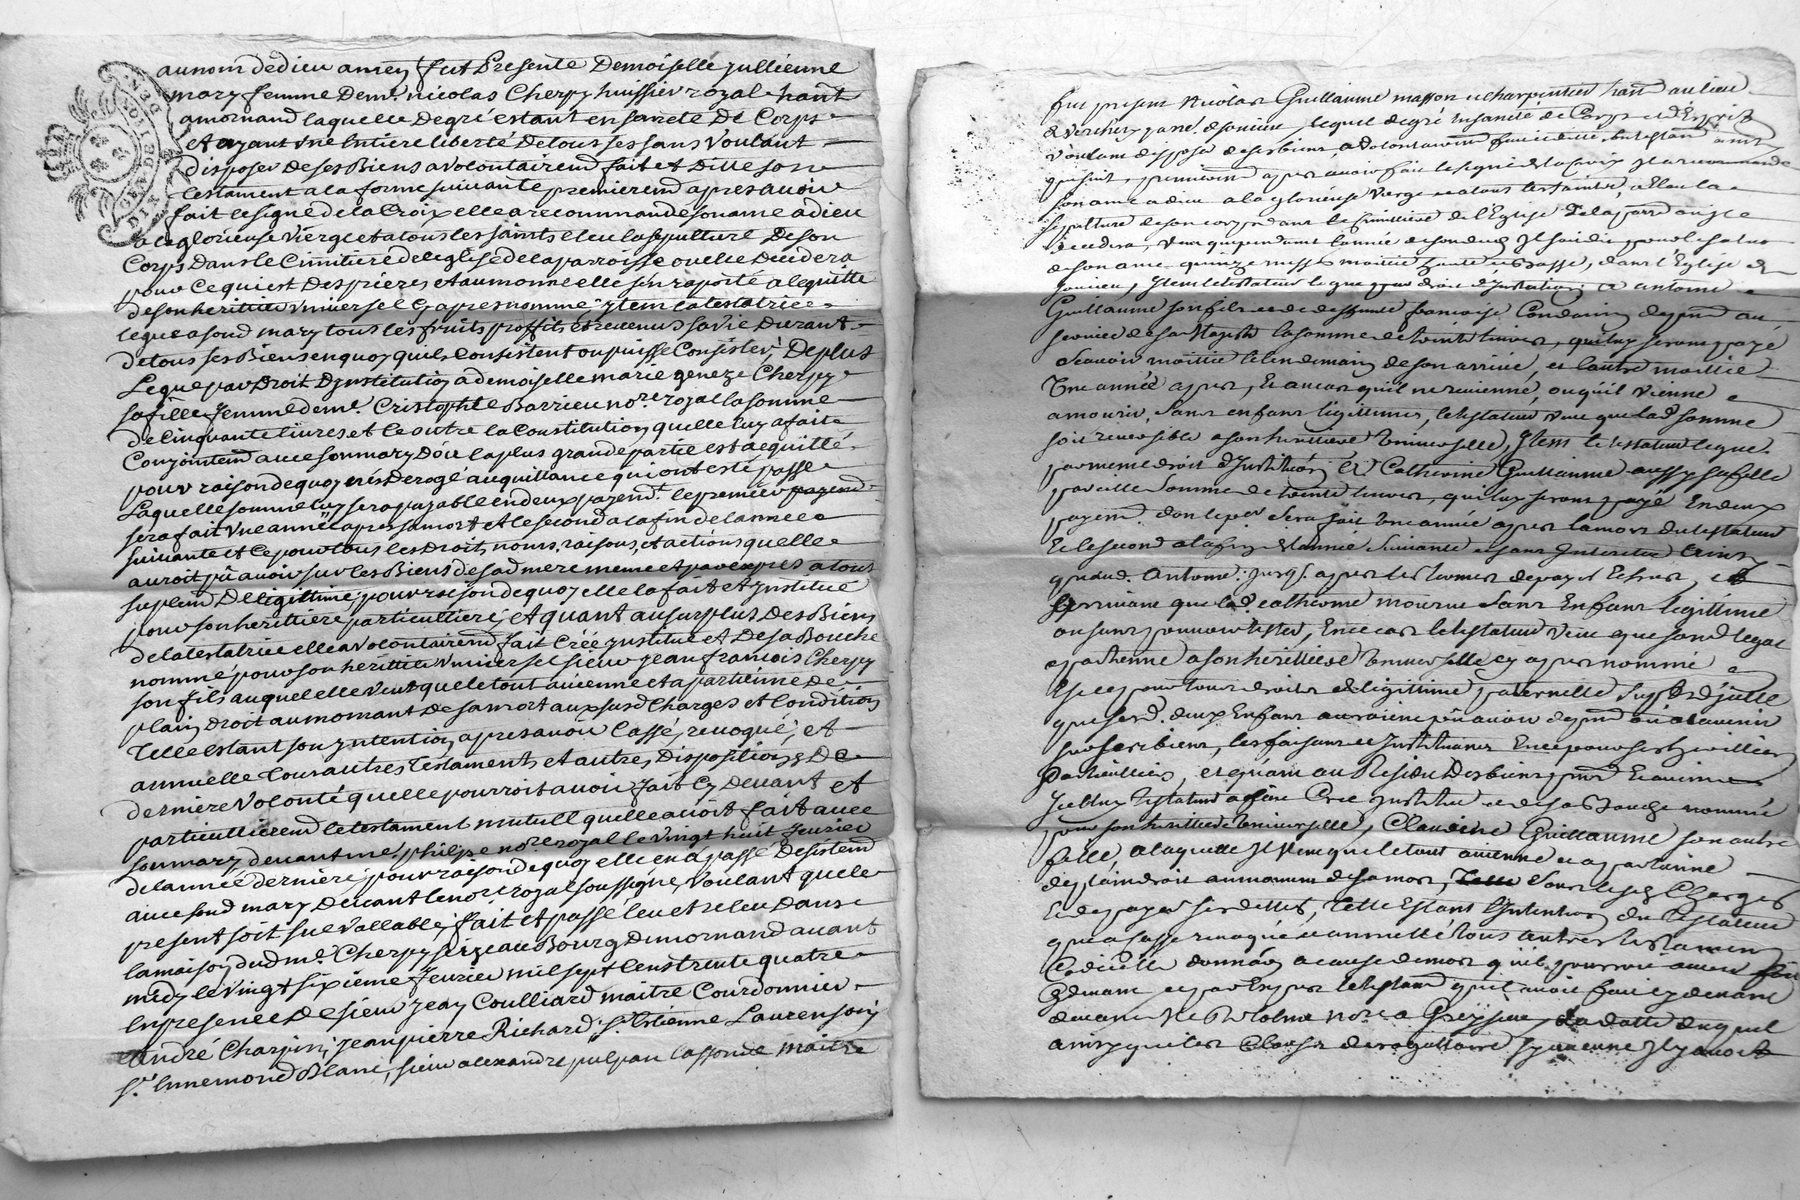 GEN DE DIX DEN
au nom de dieu amen fut Presente Demoiselle Jullienne
mary femme De me. nicolas Cherpy huissier royal hant
a mornand laquelle De gré estant en santé De Corps
Et ayant une Entiere liberté De tous ses sans Voulant
disposer De ses Biens a volontairemt fait et Ditte son
testament a la forme suivante premieremt apres avoir
fait le signe de la Croix elle a recommandé son ame a dieu
a la glorieuse vierge et a tous les saints eleu la sepulture De son
Corps Dans le Cimitiere de leglise de la parroisse ou elle Decidera
pour Ce qui est Des prieres et aumonne elle s'en raporte a lequitte
de son heritier universel Cy apres nommé, Item la testatrice
legue a sond mary tous les fruits proffits et revenus sa vie Durant
de tous ses Biens en quoy quils Consistent ou puisse Consister, De plus
Legue par Droit D'institution a demoiselle marie Cherpy
sa fille femme de me. Cristophle Barrieu nore. royal la somme
de Cinquante livres et Ce outre la Constitution quelle luy a fait
Conjointemt avec son mary Dou la plus grande partie est acquitté
pour raison de quoy n'est Derogé au quittance qui ont esté passe
Laquelle somme luy sera payable en deux payemt. le premier payemt
sera fait une anné apres sa mort et le second a la fin de lannee
suivante et Ce pour tous les Droits, noms, raisons, et actions quelle
auroit pû avoir sur les Biens de sad mere meme et par expres a tout
suplemt De ligittime, pour raison de quoy elle la fait et Institue
pour son heritiere particuliere, et quant au surplus Des Biens
de la testatrice elle a volontairemt fait Créé Institue et De sa Bouche
nommé pour son heritier universel sieur Jean francois Cherpy
son fils auquel elle veut que le tout avienne et apartienne De
plain Droit au momant De sa mort aux susd Charges et Condition
Telle estant son Intention apres avoir Cassé, revoqué, et
annulle tous autres Testaments et autres Dispositions De
derniere volonté quelle pourroit avoir fait Cy Devant et
particullieremt le testament mutuel quelle avoit fait avec
son mary, devant me. philipe nore. royal le vingt huit fevrier
de lannee derniere, pour raison de quoy elle en a passé Desistemt
avec sond mary Devant le nore royal soussigné, Voulant que le
present soit seul vallable, fait et passé leu et releu Dans
la maison dud me. Cherpy size au Bourg De mornand avant
midy le vingt sixieme fevrier mil sept Cens trente quatre
En presence De sieur Jean Coulliard maitre Courdonnier
André Charpin, Jean pierre Richard, sr. Estienne Laurenson
sr. Ennemond Blanc, sieur alexandre maitre
fut present Nicolas Guillaume masson et charpentier hant au lieu
de par. de lequel de gré En santé de Corps et d'Esprit
voulant disposer de ses biens, a volontairemt fait et ditte son testamt ainsy
que suit, premieremt apres avoir fait le signe de la croix Il a recommandé
son ame a dieu a la glorieuse vierge et a tous les saints, a Eleu la
sepulture de son corps dans le Cimittiere de l'Eglise De la parre ou Il
decedera, veut que pendant l'année de son deuil Il soit dit pour le salut
de son ame quinze messes moittie et Basse, dans l'Eglise de
Item le testateur legue par droit d'Institution a antoine
Guillaume son fils et de deffunte francoise
service de sa Majesté la somme de trente livres, qui luy seront payé
Scavoir moittie le lendemain de son arrivé, et l'autre moittie
Une année apres, Et au cas qu'il ne revienne, ou qu'il vienne
a mourir, sans enfans legittimes, le testateur veut que lad. somme
soit reversible a son heritiere universelle, Item le testateur legue
par meme droit d'Institution a Catherine Guillaume aussy sa fille
pareille Somme de trente livres, qui luy seront payé En deux
payemt. dont le per. Sera fait Une année apres la mort du testateur
Et le second a la fin de l'année Suivante et sans Interets
Antoine
que lad. catherine mourut Sans Enfans legittime
ou sans pouvoir tester, En ce cas le testateur veut que son d. legat
apartienne a son heritiere Universelle cy apres nommé
Et ce pour tous droits de legittime paternelle
que sesd. deux Enfans auroient pû avoir
sur ses biens, les faisant et Instituant En ce pour ses heritiers
particulliers, et quant au Residu Des biens
Icelluy testateur a fait Créé Institué et de sa Bouche nommé
pour son heritiere Universelle, Claudine Guillaume son autre
fille, a laquelle Il veut que le tout avienne et apartienne
de plain droit au moment de sa mort, Sous les Charges
Et de payer ses dettes, Telle Estant l'Intention du Testateur
qui a Cassé revoqué et annullé tous autres testament
Codicille donnation a cause de mort qu'il pourroit avoir fait
Cy devant et par Expres le testamt qu'il avoit fait cy devant
devant Me nore a Grezieu, duquel
ainsy que les Clauses derogattoires